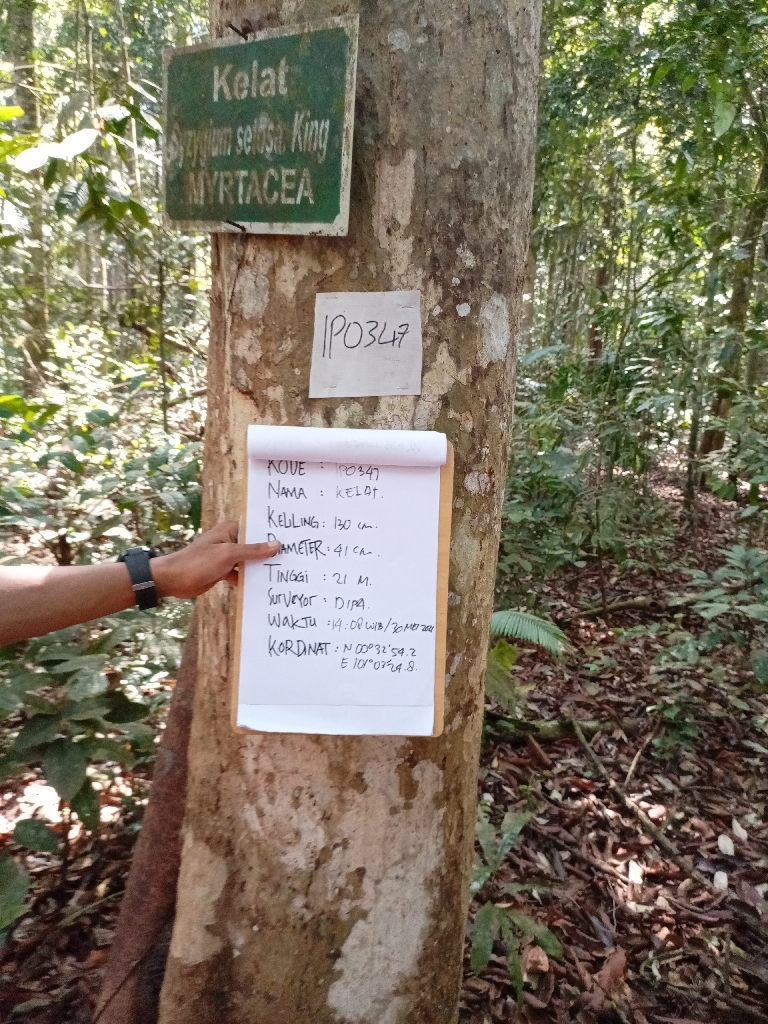 Kelat
Syzygium setosa King
MYRTACEA
IP0347
KODE : IP0347
NAMA : KELAT.
KELILING : 130 cm.
DIAMETER : 41 cm.
TINGGI : 21 M.
SURVEYOR : DIPA.
WAKTU : 14:08 WIB / 30 MEI
KORDINAT : N 00°32'54.2
E 101°03'24.8.